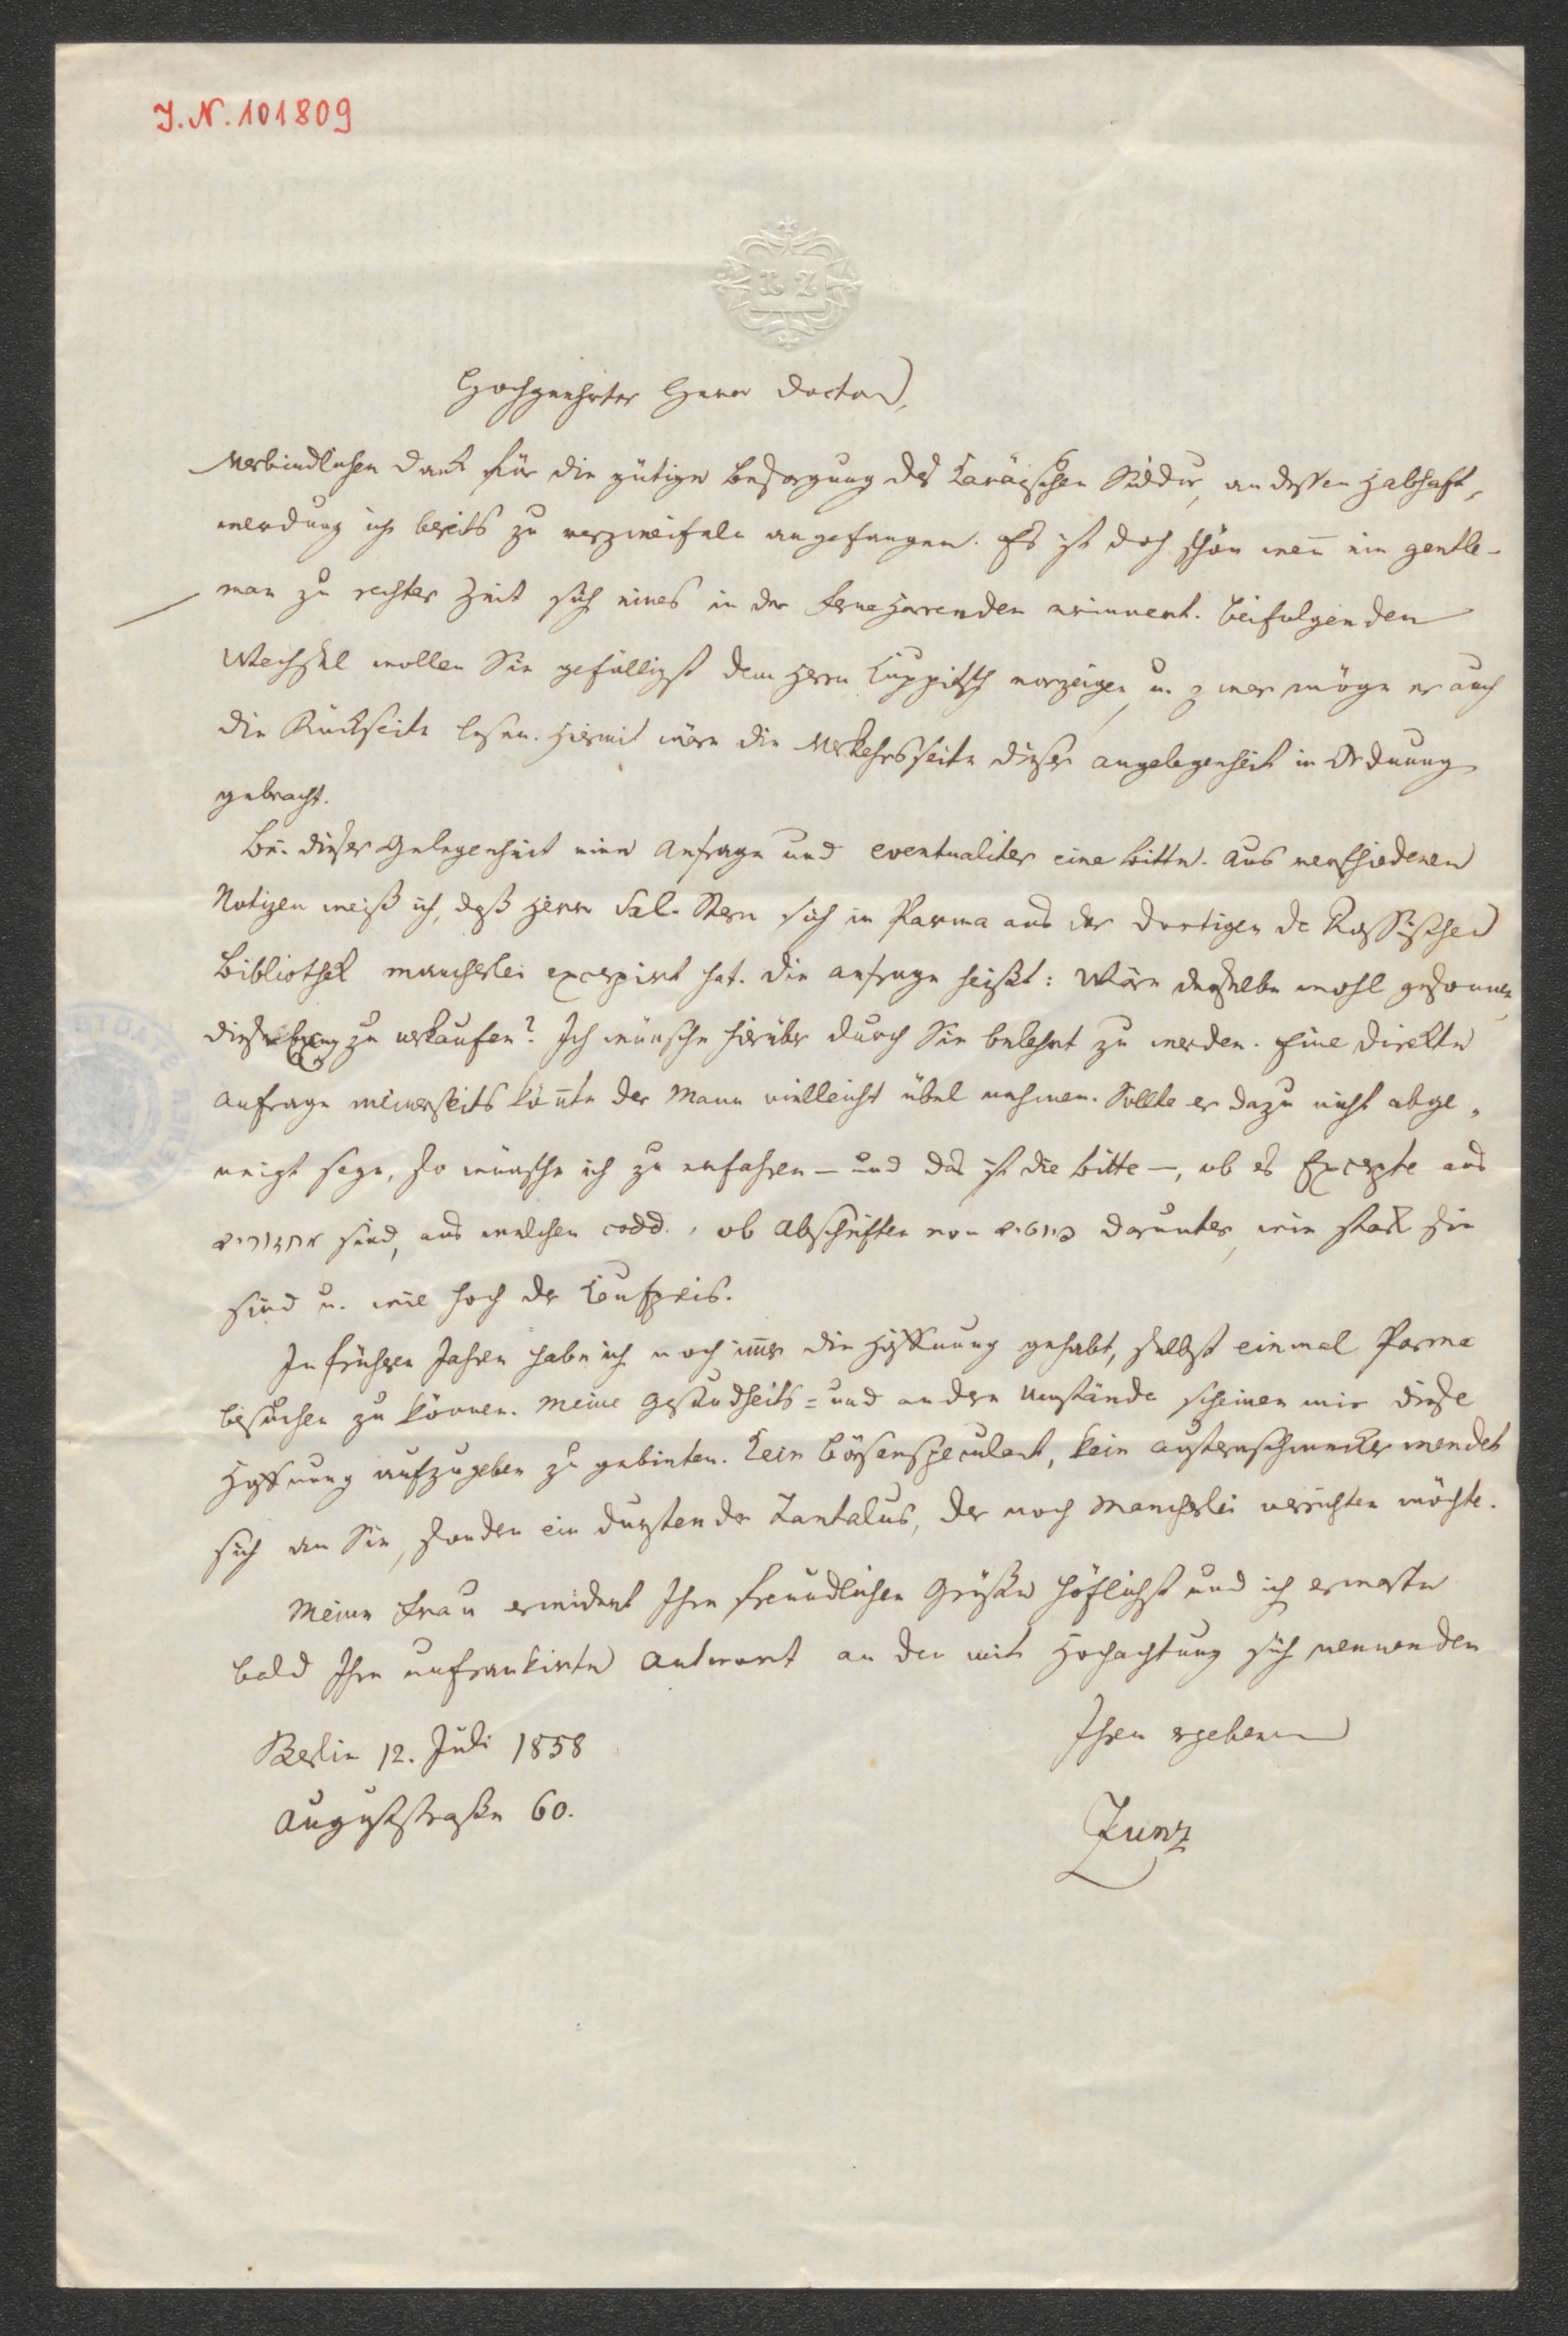 I.N. 101809
L Z
Hochgeehrter Herr Doctor,
Verbindlichen Dank für die gütige Besorgung des karäischen Siddur, an dessen Habhaft-
werdung ich bereits zu verzweifeln angefangen. Es ist doch schön weñ ein gentle-
man zu rechter Zeit sich eines in der Ferne Harrenden erinnert. Beifolgenden
Wechsel wollen Sie gefälligst dem Herrn Kuppitsch vorzeigen, u. zwar möge er auch
die Rückseite lesen. Hiermit wäre die Verkehrsseite dieser Angelegenheit in Ordnung
gebracht.
Bei dieser Gelegenheit eine Anfrage und eventualiter eine Bitte. Aus verschiedenen
Notizen weiß ich, daß Herr Sal. Stern sich in Parma aus der dortigen de Rossischen
Bibliothek mancherlei excerpirt hat. Die Anfrage heißt: Wäre derselbe wohl gesonnen,
diese zu verkaufen? Ich wünsche hierüber durch Sie belehrt zu werden. Eine direkte
Anfrage meinerseits köñte der Mann vielleicht übel nehmen. Sollte er dazu nicht abge-
neigt seyn, so wünsche ich zu erfahren — und das ist die Bitte —, ob es Excerpte aus
מחזורים sind, aus welchen codd., ob Abschriften von פיוטים darunter, wie stark sie
sind u. wie hoch der Kaufpreis.
In frühern Jahren habe ich noch im̃er die Hoffnung gehabt, selbst einmal Parma
besuchen zu können. Meine Gesundheits- und andern Umstände scheinen mir diese
Hoffnung aufzugeben zu gebieten. Kein Börsenspeculant, kein Austernschmecker wendet
sich an Sie, sondern ein durstender Tantalus, der noch mancherlei verrichten möchte.
Meine Frau erwidert Ihre freundlichen Grüße höflichst und ich erwarte
bald Ihre unfrankirte Antwort an den mit Hochachtung sich nennenden
Ihren ergebenen
Berlin 12. Juli 1858
Auguststraße 60.
Zunz